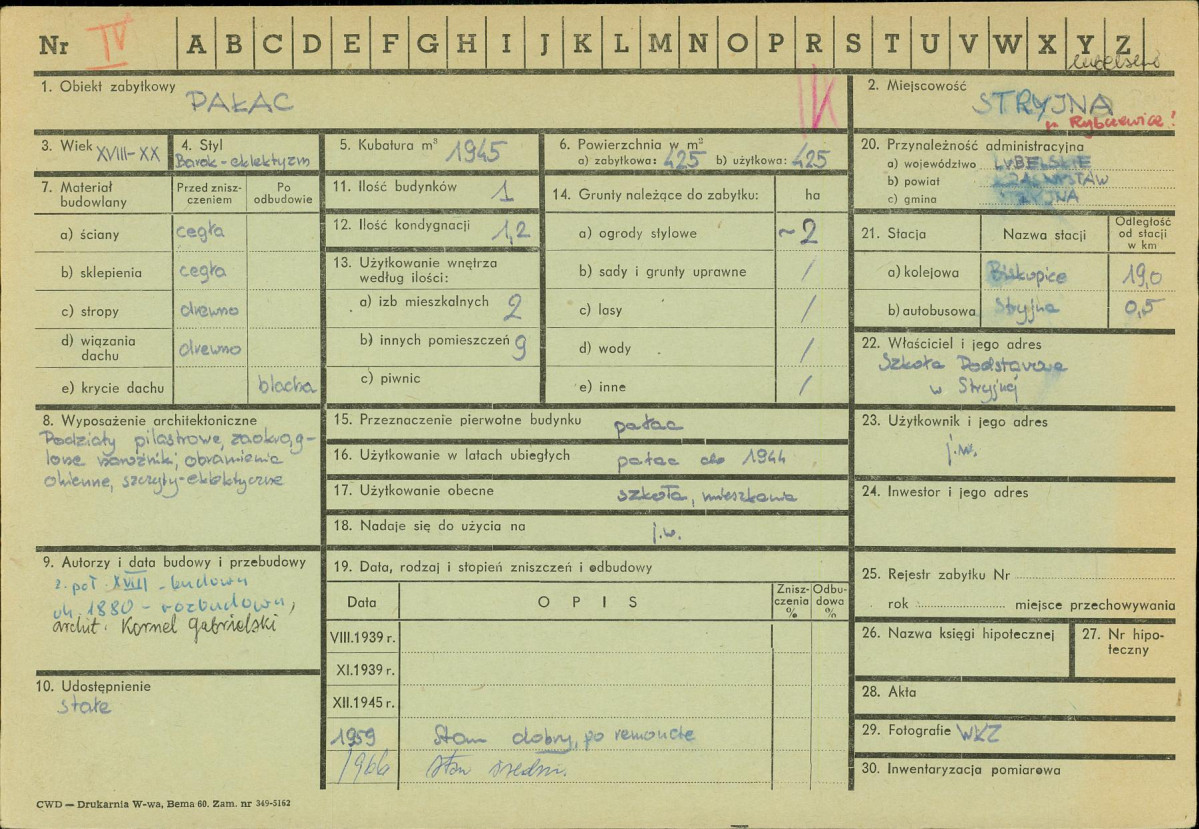 Nr IV A B C D E F G H I J K L M N O P R S T U V W X Y Z
lubelskie
1. Obiekt zabytkowy
PAŁAC
IV
2. Miejscowość
STRYJNA
p. Rybczewice!
3. Wiek XVIII-XX
4. Styl
Barok-eklektyzm
5. Kubatura m³ 1945
6. Powierzchnia w m²
a) zabytkowa: 425 b) użytkowa: 425
20. Przynależność administracyjna
a) województwo LUBELSKIE
b) powiat KRASNYSTAW
c) gmina STRYJNA
7. Materiał budowlany
Przed zniszczeniem
Po odbudowie
a) ściany cegła
b) sklepienia cegła
c) stropy drewno
d) wiązania dachu drewno
e) krycie dachu blacha
11. Ilość budynków 1
12. Ilość kondygnacji 1,2
13. Użytkowanie wnętrza
według ilości:
a) izb mieszkalnych 2
b) innych pomieszczeń 9
c) piwnic
14. Grunty należące do zabytku: ha
a) ogrody stylowe ~2
b) sady i grunty uprawne /
c) lasy /
d) wody /
e) inne /
21. Stacja Nazwa stacji Odległość od stacji w km
a) kolejowa Biskupice 19,0
b) autobusowa Stryjna 0,5
22. Właściciel i jego adres
Szkoła Podstawowa
w Stryjnej
8. Wyposażenie architektoniczne
Podziały pilastrowe, zaokrąg-
lone narożniki, obramienia
okienne, szczyty-eklektyczne
15. Przeznaczenie pierwotne budynku pałac
16. Użytkowanie w latach ubiegłych pałac do 1944
17. Użytkowanie obecne szkoła, mieszkania
18. Nadaje się do użycia na j.w.
23. Użytkownik i jego adres
j.w.
24. Inwestor i jego adres
9. Autorzy i data budowy i przebudowy
2. poł XVIII - budowa
ok. 1880 - rozbudowa,
archit. Kornel Gabrielski
10. Udostępnienie
stałe
19. Data, rodzaj i stopień zniszczeń i odbudowy
Data OPIS Zniszczenia % Odbudowa %
VIII.1939 r.
XI.1939 r.
XII.1945 r.
1959 Stan dobry, po remoncie
1966 stan średni.
25. Rejestr zabytku Nr
rok miejsce przechowywania
26. Nazwa księgi hipotecznej
27. Nr hipoteczny
28. Akta
29. Fotografie WKZ
30. Inwentaryzacja pomiarowa
CWD — Drukarnia W-wa, Bema 60. Zam. nr 349-5162